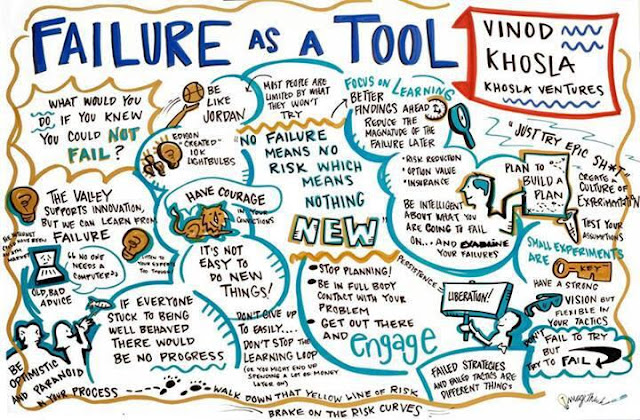 FAILURE AS A TOOL
VINOD
KHOSLA
KHOSLA VENTURES
WHAT WOULD YOU
DO IF YOU KNEW
YOU COULD NOT
FAIL?
BE
LIKE
JORDAN
MOST PEOPLE ARE
LIMITED BY WHAT
THEY WON'T
TRY
FOCUS ON LEARNING
BETTER
FINDINGS AHEAD
REDUCE THE
MAGNITUDE OF THE
FAILURE LATER
EDISON
"CREATED"
10K
LIGHTBULBS
"NO FAILURE
MEANS NO
RISK WHICH
MEANS
NOTHING
NEW"
• RISK REDUCTION
• OPTION VALUE
• INSURANCE
BE INTELLIGENT
ABOUT WHAT YOU
ARE GOING TO FAIL
ON...AND EXAMINE
YOUR FAILURES
"JUST TRY EPIC SH*T"
PLAN TO
BUILD
A PLAN
CREATE
CULTURE OF
EXPERIMENTATION
TEST YOUR
ASSUMPTIONS
SMALL EXPERIMENTS
ARE KEY
THE VALLEY
SUPPORTS INNOVATION,
BUT WE CAN LEARN FROM
FAILURE
HAVE COURAGE
IN YOUR
CONVICTIONS
IT'S NOT
EASY TO
DO NEW
THINGS!
LISTEN TO
YOUR EXPERTS
TOO
"NO ONE
NEEDS A
COMPUTER"
OLD, BAD
ADVICE
IF EVERYONE
STUCK TO BEING
WELL BEHAVED
THERE WOULD
BE NO PROGRESS
DON'T GIVE UP
TO EASILY...
DON'T STOP THE
LEARNING LOOP
(OR YOU MIGHT END UP
SPENDING A LOT OF MONEY
LATER ON)
• STOP PLANNING!
• BE IN FULL BODY
CONTACT WITH YOUR
PROBLEM
• GET OUT THERE
AND engage
PERSISTENCE
LIBERATION!
HAVE A STRONG
VISION BUT
FLEXIBLE IN
YOUR TACTICS
FAILED STRATEGIES
AND FAILED TACTICS ARE
DIFFERENT THINGS
DON'T FAIL TO TRY
BUT
TRY TO FAIL
BE
OPTIMISTIC
AND PARANOID
IN YOUR PROCESS
WALK DOWN THAT YELLOW LINE OF RISK
BRAKE ON THE RISK CURVES